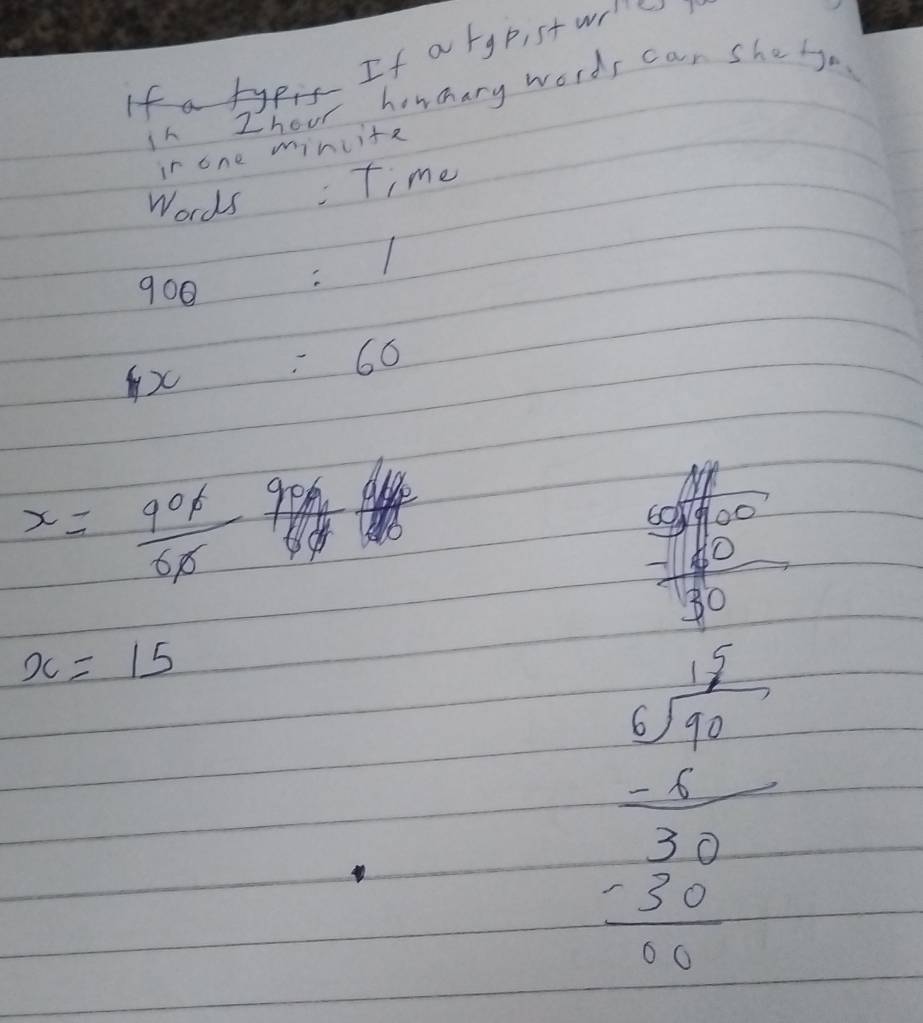 If a typist If a typist
in 1 hour how many words can she
in one minuite
Words : Time
900 : 1
x : 60
x = 900/60
x = 15
60 900
- 60
30
15
6 90
- 6
30
- 30
00